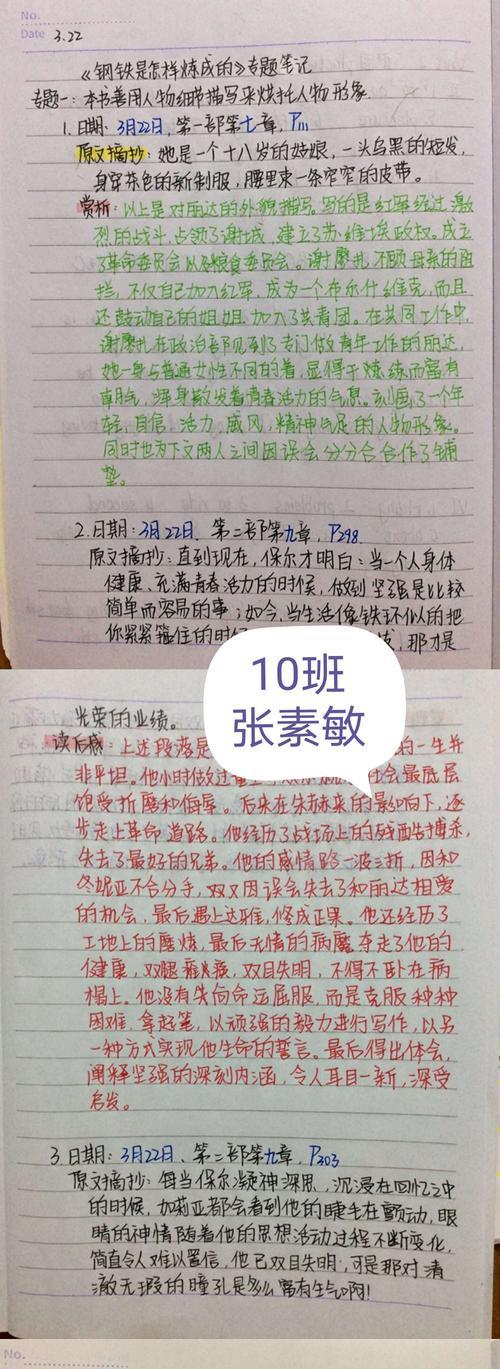 No.
Date 3.22
《钢铁是怎样炼成的》专题笔记
专题一：本书善用人物细节描写来烘托人物形象
1.日期：3月22日，第一部第七章，P111
原文摘抄：她是一个十八岁的姑娘，一头乌黑的短发，
身穿茶色的新制服，腰里束一条窄窄的皮带。
赏析：以上是对丽达的外貌描写。写的是红军经过激
烈的战斗，占领了谢城，建立了苏维埃政权。成立
了革命委员会以及粮食委员会。谢廖扎不顾母亲的阻
拦，不仅自己加入红军，成为一个布尔什维克，而且
还鼓动自己的姐姐加入了共青团。在共同工作中，
谢廖扎在政治部见到了专门做青年工作的丽达，
她一身与普通女性不同的着，显得干炼练而富有
朝气，浑身散发着青春活力的气息。刻画了一个年
轻，自信，活力，威风，精神气足的人物形象。
同时也为下文两人之间因误会分分合合作了铺
垫。
2.日期：3月22日，第二部第九章，P298
原文摘抄：直到现在，保尔才明白：当一个人身体
健康、充满青春活力的时候，做到坚强是比较
简单而容易的事；如今，当生活像铁环似的把
你紧紧箍住的时候 那才是
10班
张素敏
光荣的业绩。
读后感：上述段落是 的一生并
非平坦。他小时做过 社会最底层
饱受折磨和侮辱。后来在朱赫来的影响下，逐
步走上革命道路。他经历了战场上的残酷搏杀，
失去了最好的兄弟。他的感情路一波三折，因和
冬妮亚不合分手，双又因误会失去了和丽达相爱
的机会，最后遇上达雅，修成正果。他还经历了
工地上的磨炼，最后无情的病魔夺走了他的
健康，双腿瘫痪，双目失明，不得不卧在病
榻上。他没有失向命运屈服，而是克服种种
困难，拿起笔，以顽强的毅力进行写作，以另
一种方式实现他生命的誓言。最后得出体会，
阐释坚强的深刻内涵，令人耳目一新，深受
启发。
3.日期：3月22日、第二部第九章，P303
原文摘抄：每当保尔凝神深思，沉浸在回忆之中
的时候，加莉亚都会看到他的睫毛在颤动，眼
睛的神情随着他的思想活动过程不断变化，
简直令人难以置信，他已双目失明，可是那对清
澈无瑕的瞳孔是多么富有生气啊！
No.